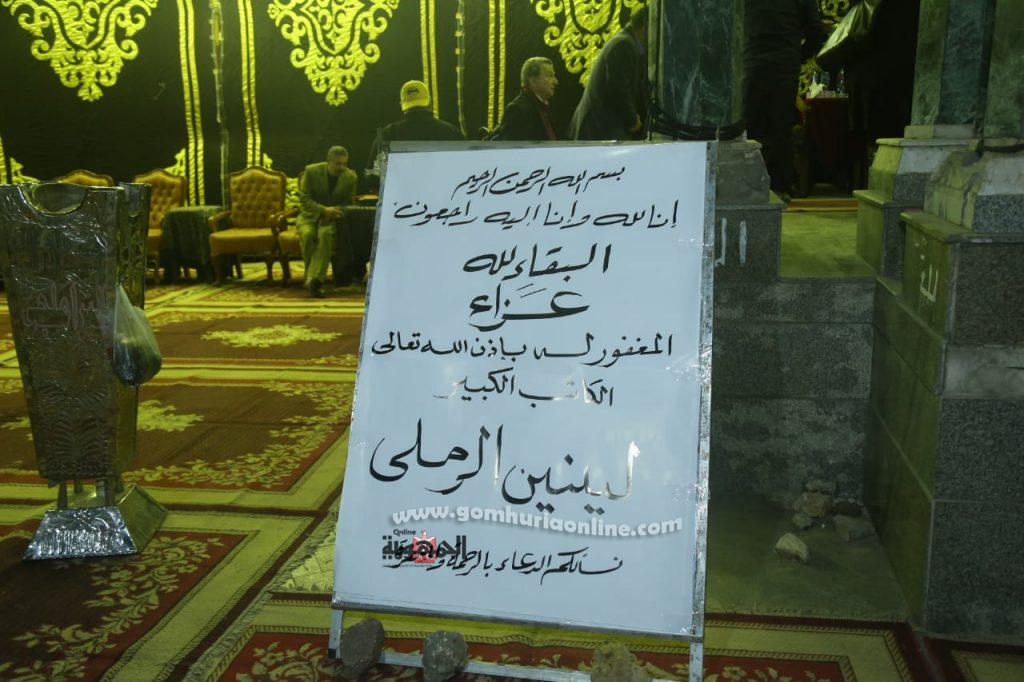 بسم الله الرحمن الرحيم
إنا لله وإنا اليه راجعون
البقاء لله
عزاء
المغفور له بإذن الله تعالى
الكاتب الكبير
لينين الرملى
www.gomhuriaonline.com
Online
الجمهورية
نسألكم الدعاء بالرحمة والمغفرة